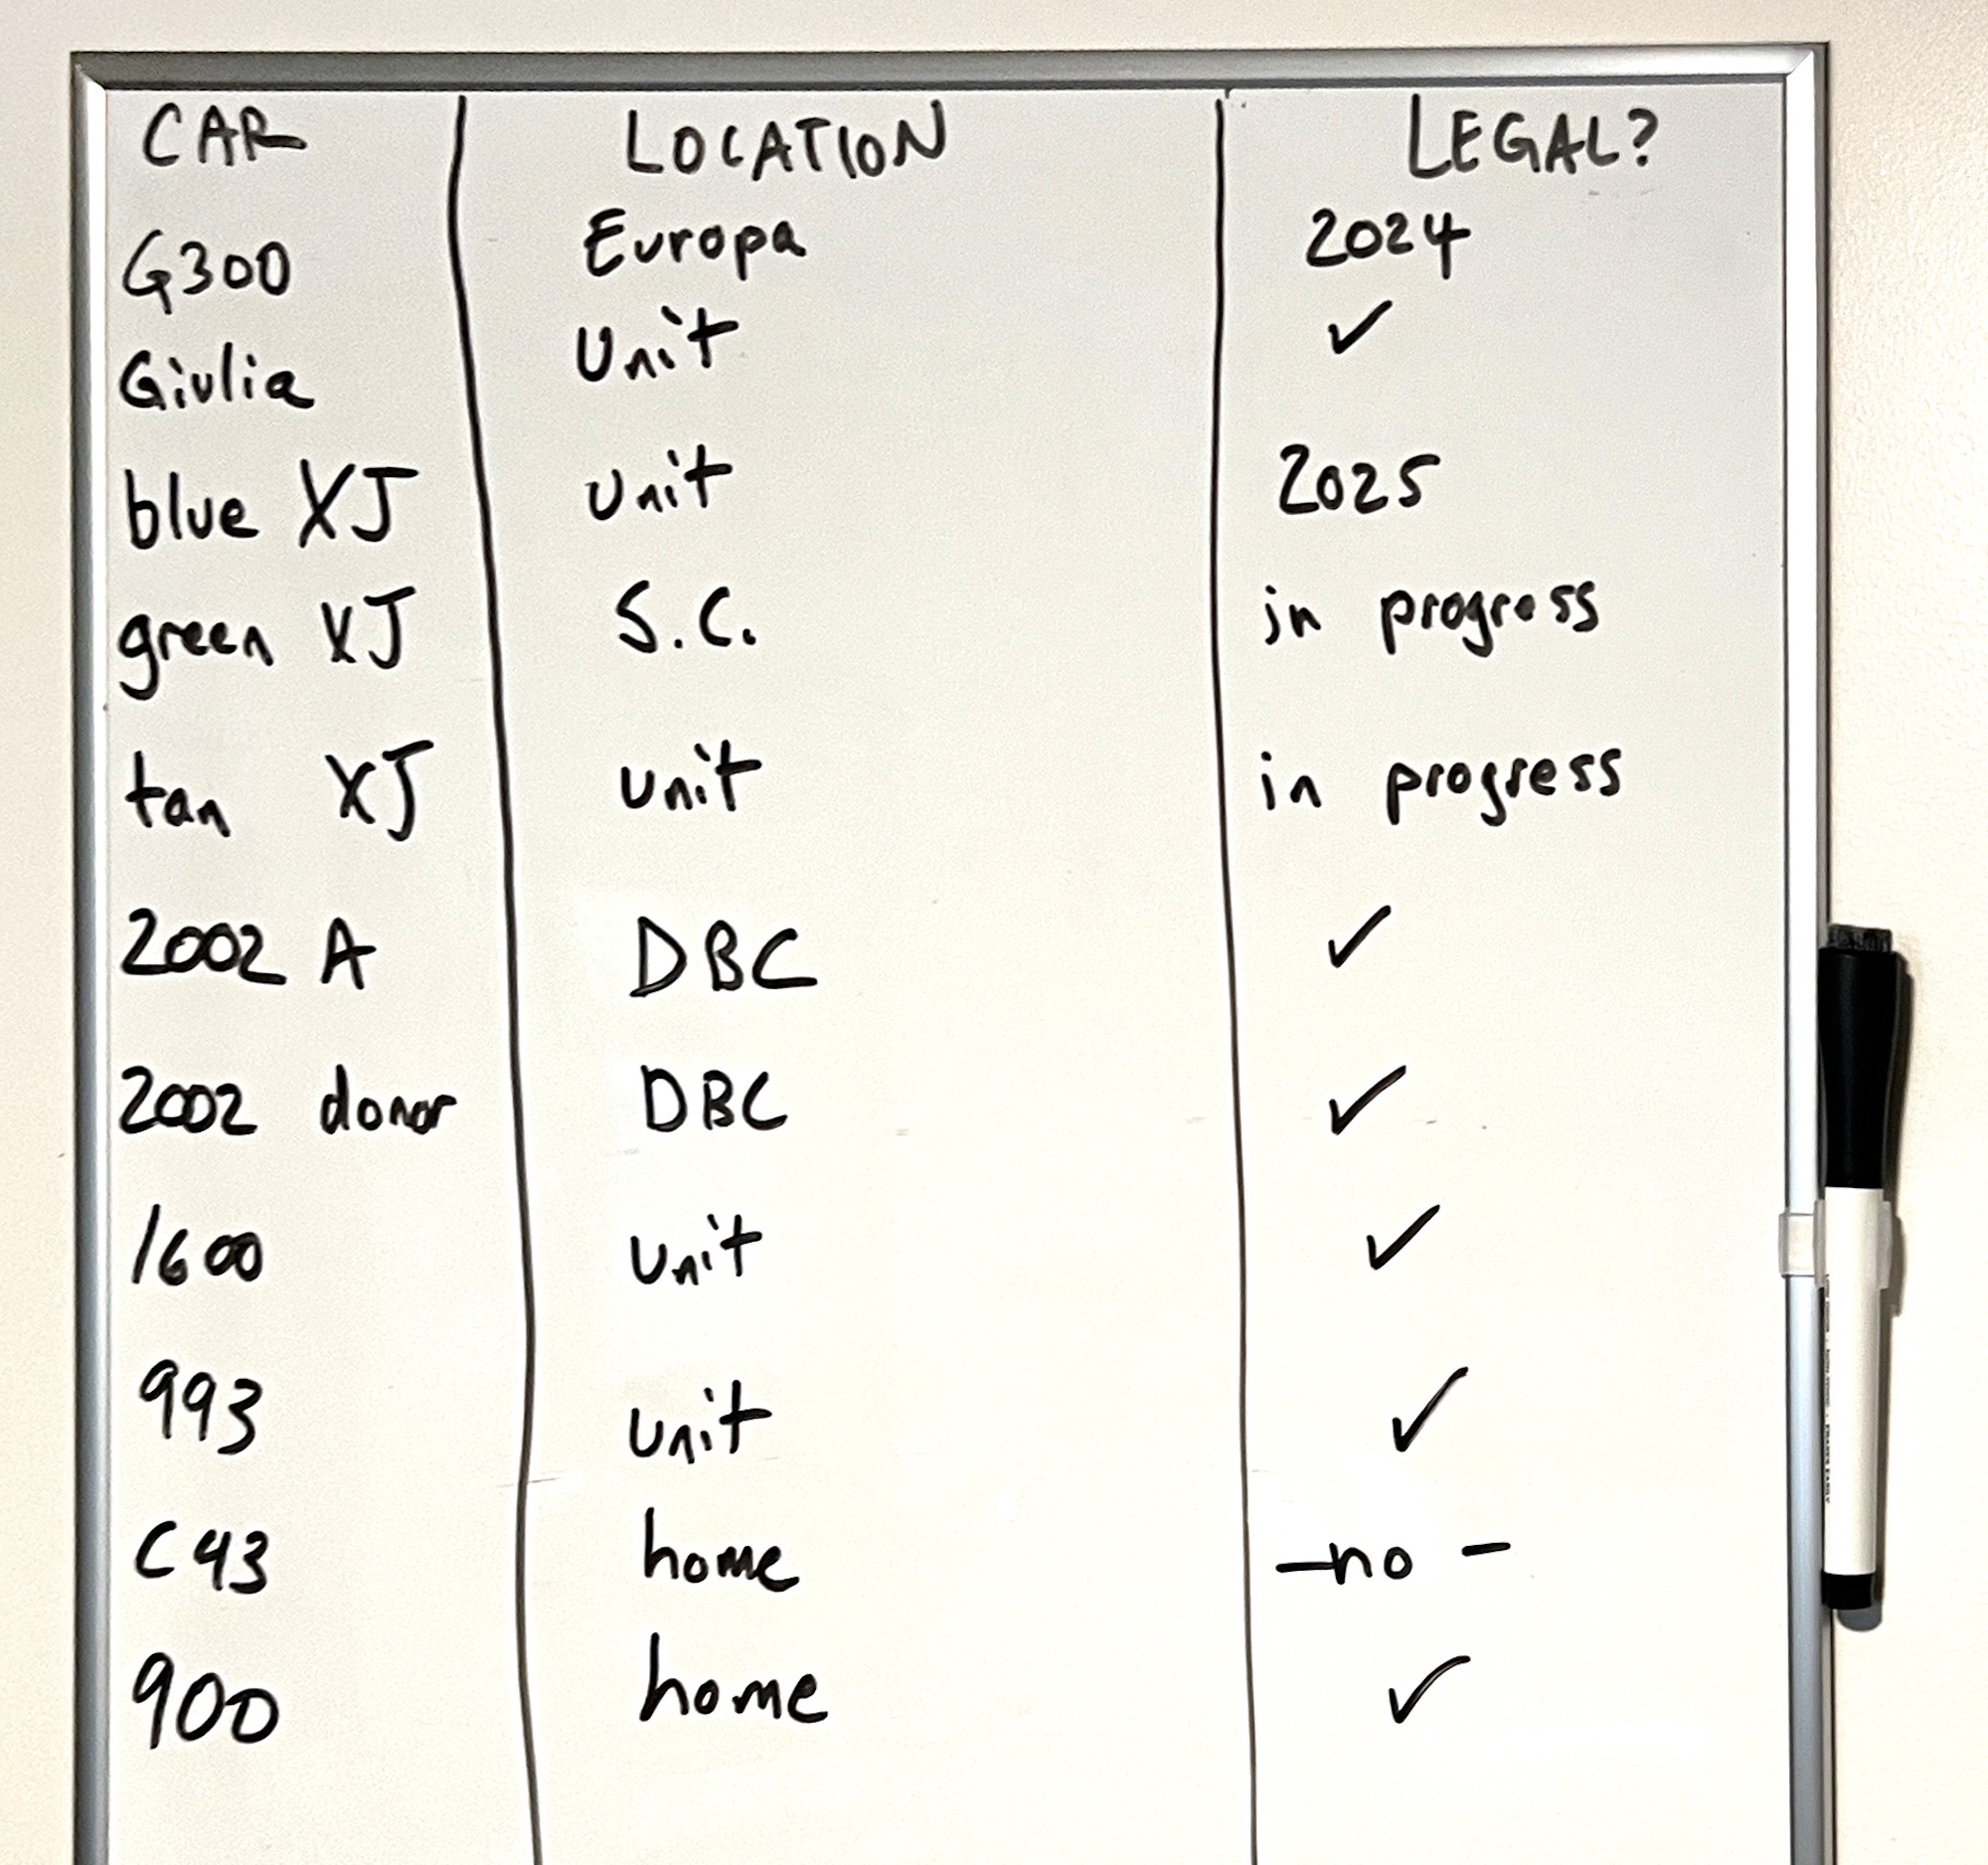 CAR LOCATION LEGAL?
G300 Europa 2024
Giulia Unit ✓
blue XJ Unit 2025
green XJ S.C. in progress
tan XJ unit in progress
2002 A DBC ✓
2002 donor DBC ✓
1600 unit ✓
993 unit ✓
C43 home –no –
900 home ✓